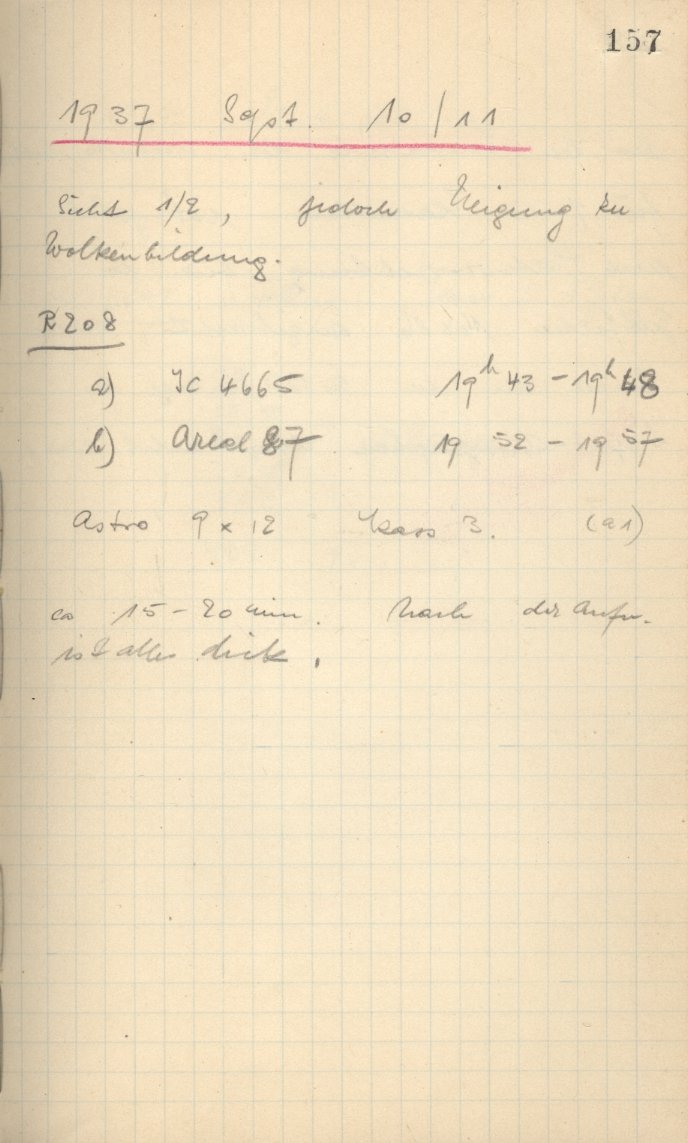 157
1937 Sept. 10/11
Sicht 1/2, jedoch Neigung zu
Wolkenbildung.
R208
a) IC 4665 19h 43 - 19h 48
b) Areal 87 19 52 - 19 57
Astro 9 x 12 Kass 3. (a1)
ca 15-20 min. nach der Aufn.
ist alles dick.